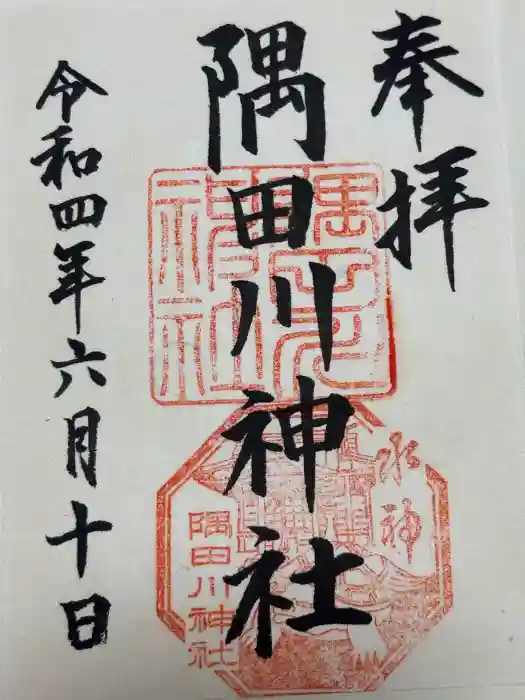 奉拝
隅田川神社
水神
隅田川神社
令和四年六月十日